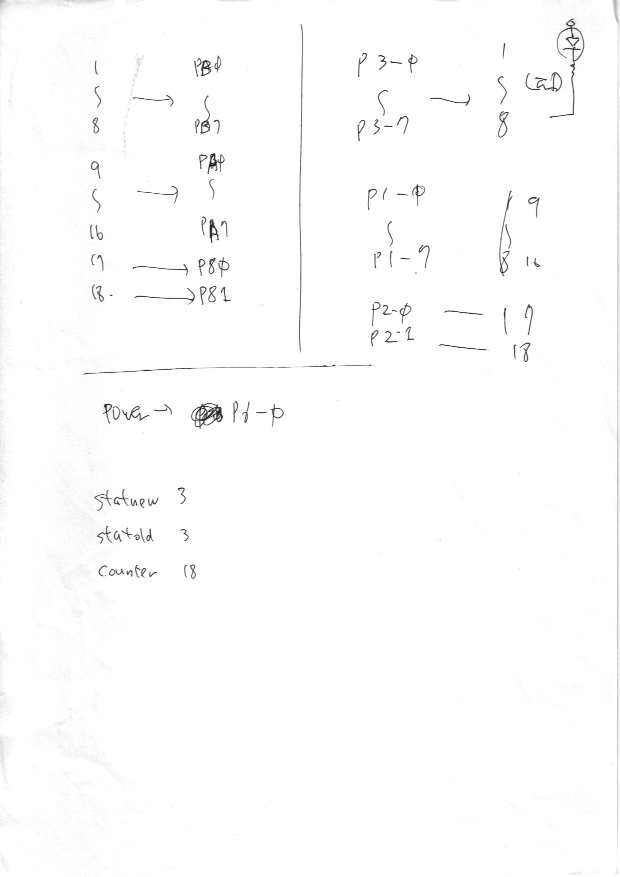 1 PB0
8 PB7
9 PA0
16 PA7
17 → P80
18. → P81
P3-0 → 1
P3-7 8
P1-0 9
P1-7 16
P2-0 — 17
P2-1 — 18
Power →
statnew 3
statold 3
counter 18